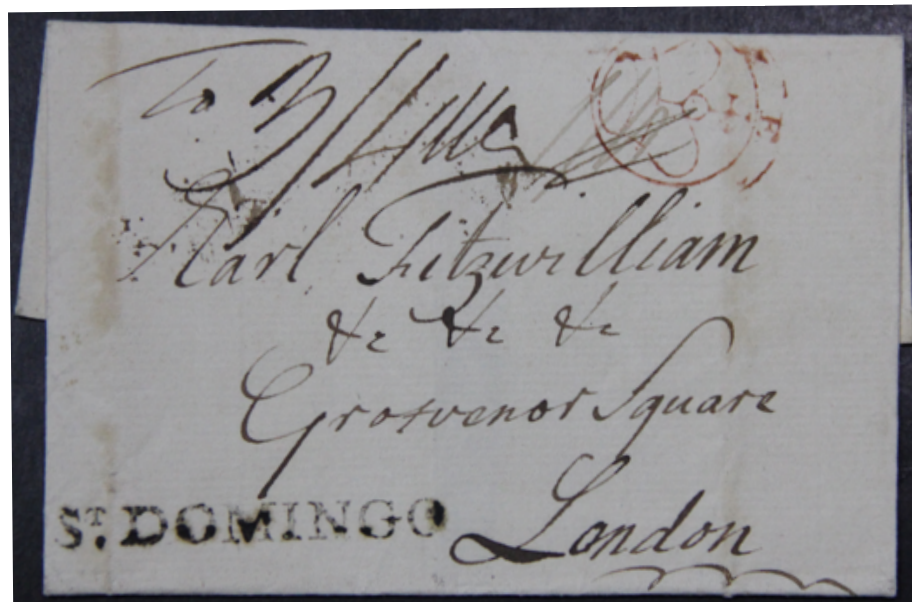 To
Earl Fitzwilliam
&c &c &c
Grosvenor Square
London
ST. DOMINGO